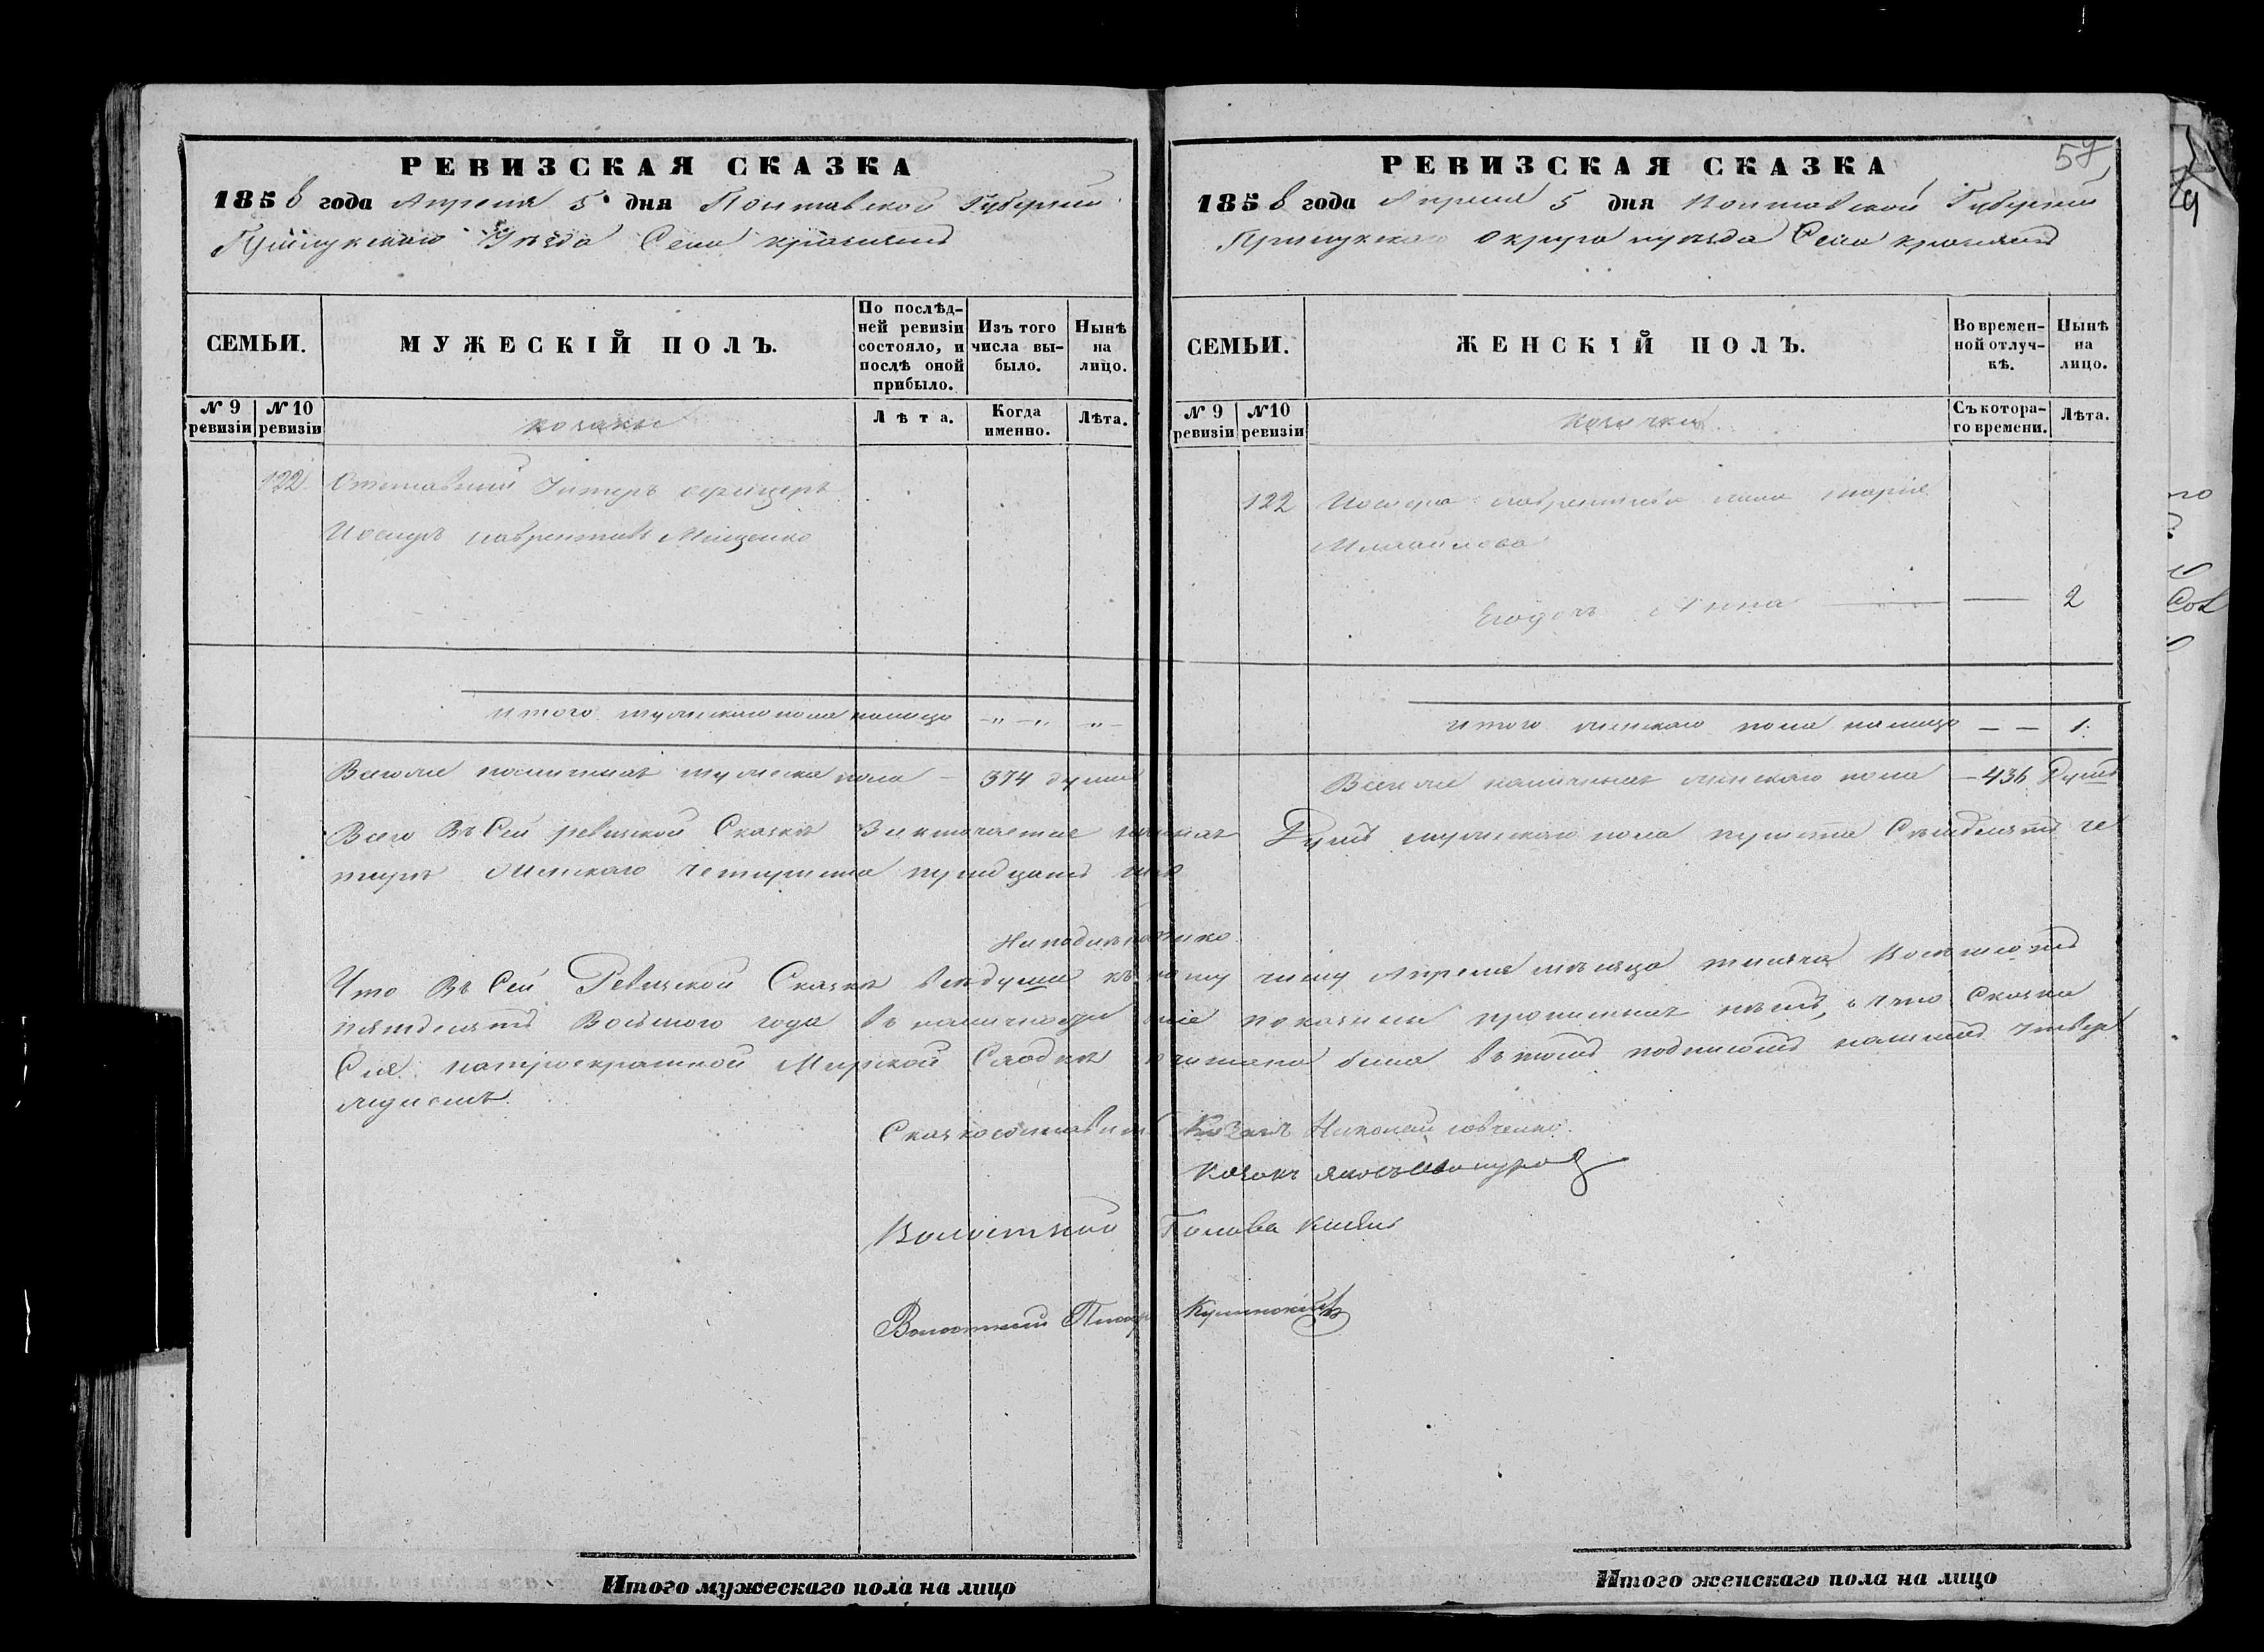 РЕВИЗСКАЯ СКАЗКА
1858 года Апреля 5 дня Полтавской Губерніи
Прилукскаго Уезда Села
СЕМЬИ.
МУЖЕСКІЙ ПОЛЪ.
По послѣдней ревизіи состояло, и послѣ оной прибыло.
Изъ того числа выбыло.
Нынѣ на лицо.
№ 9 ревизіи
№ 10 ревизіи
козаки
Лѣта.
Когда именно.
Лѣта.
122. Отставный Унтеръ офицеръ
Иосифъ Лаврентіевъ Мищенко
итого мужескаго пола налицо — „ — „ — „ —
Всего же наличныхъ мужеска пола — 374 душъ
РЕВИЗСКАЯ СКАЗКА
59
1858 года Апреля 5 дня Полтавской Губерніи
Прилукскаго округа и уезда Села
СЕМЬИ.
ЖЕНСКІЙ ПОЛЪ.
Во временной отлучкѣ.
Нынѣ на лицо.
№ 9 ревизіи
№ 10 ревизіи
козачки
Съ котораго времени.
Лѣта.
122 Иосифа Лаврентіева жена Марія
Михайлова
Егодочь Анна — — 2
итого женскаго пола налицо — — 1.
Всего же наличныхъ женскаго пола — 436 Душъ
Всего Въ Сей ревизской Сказке Заключается наличныхъ Душъ мужескаго пола триста Семдесятъ че
тыре женскаго четыриста тридцать шесть
Что Въ Сей Ревизской Сказке все души къ числу Апреля месяца тысяча Восемсотъ
пятдесятъ Восьмого года въ наличности показаны прописныхъ нетъ, а что Сказка
Сія Мирской Сходке читана была въ томъ подписомъ нашимъ утвер
ждаемъ.
Сказкосоставитель Козакъ Николай
Козакъ Яковъ
Волостной Голова
Волостный Писарь
Итого мужескаго пола на лицо
Итого женскаго пола на лицо